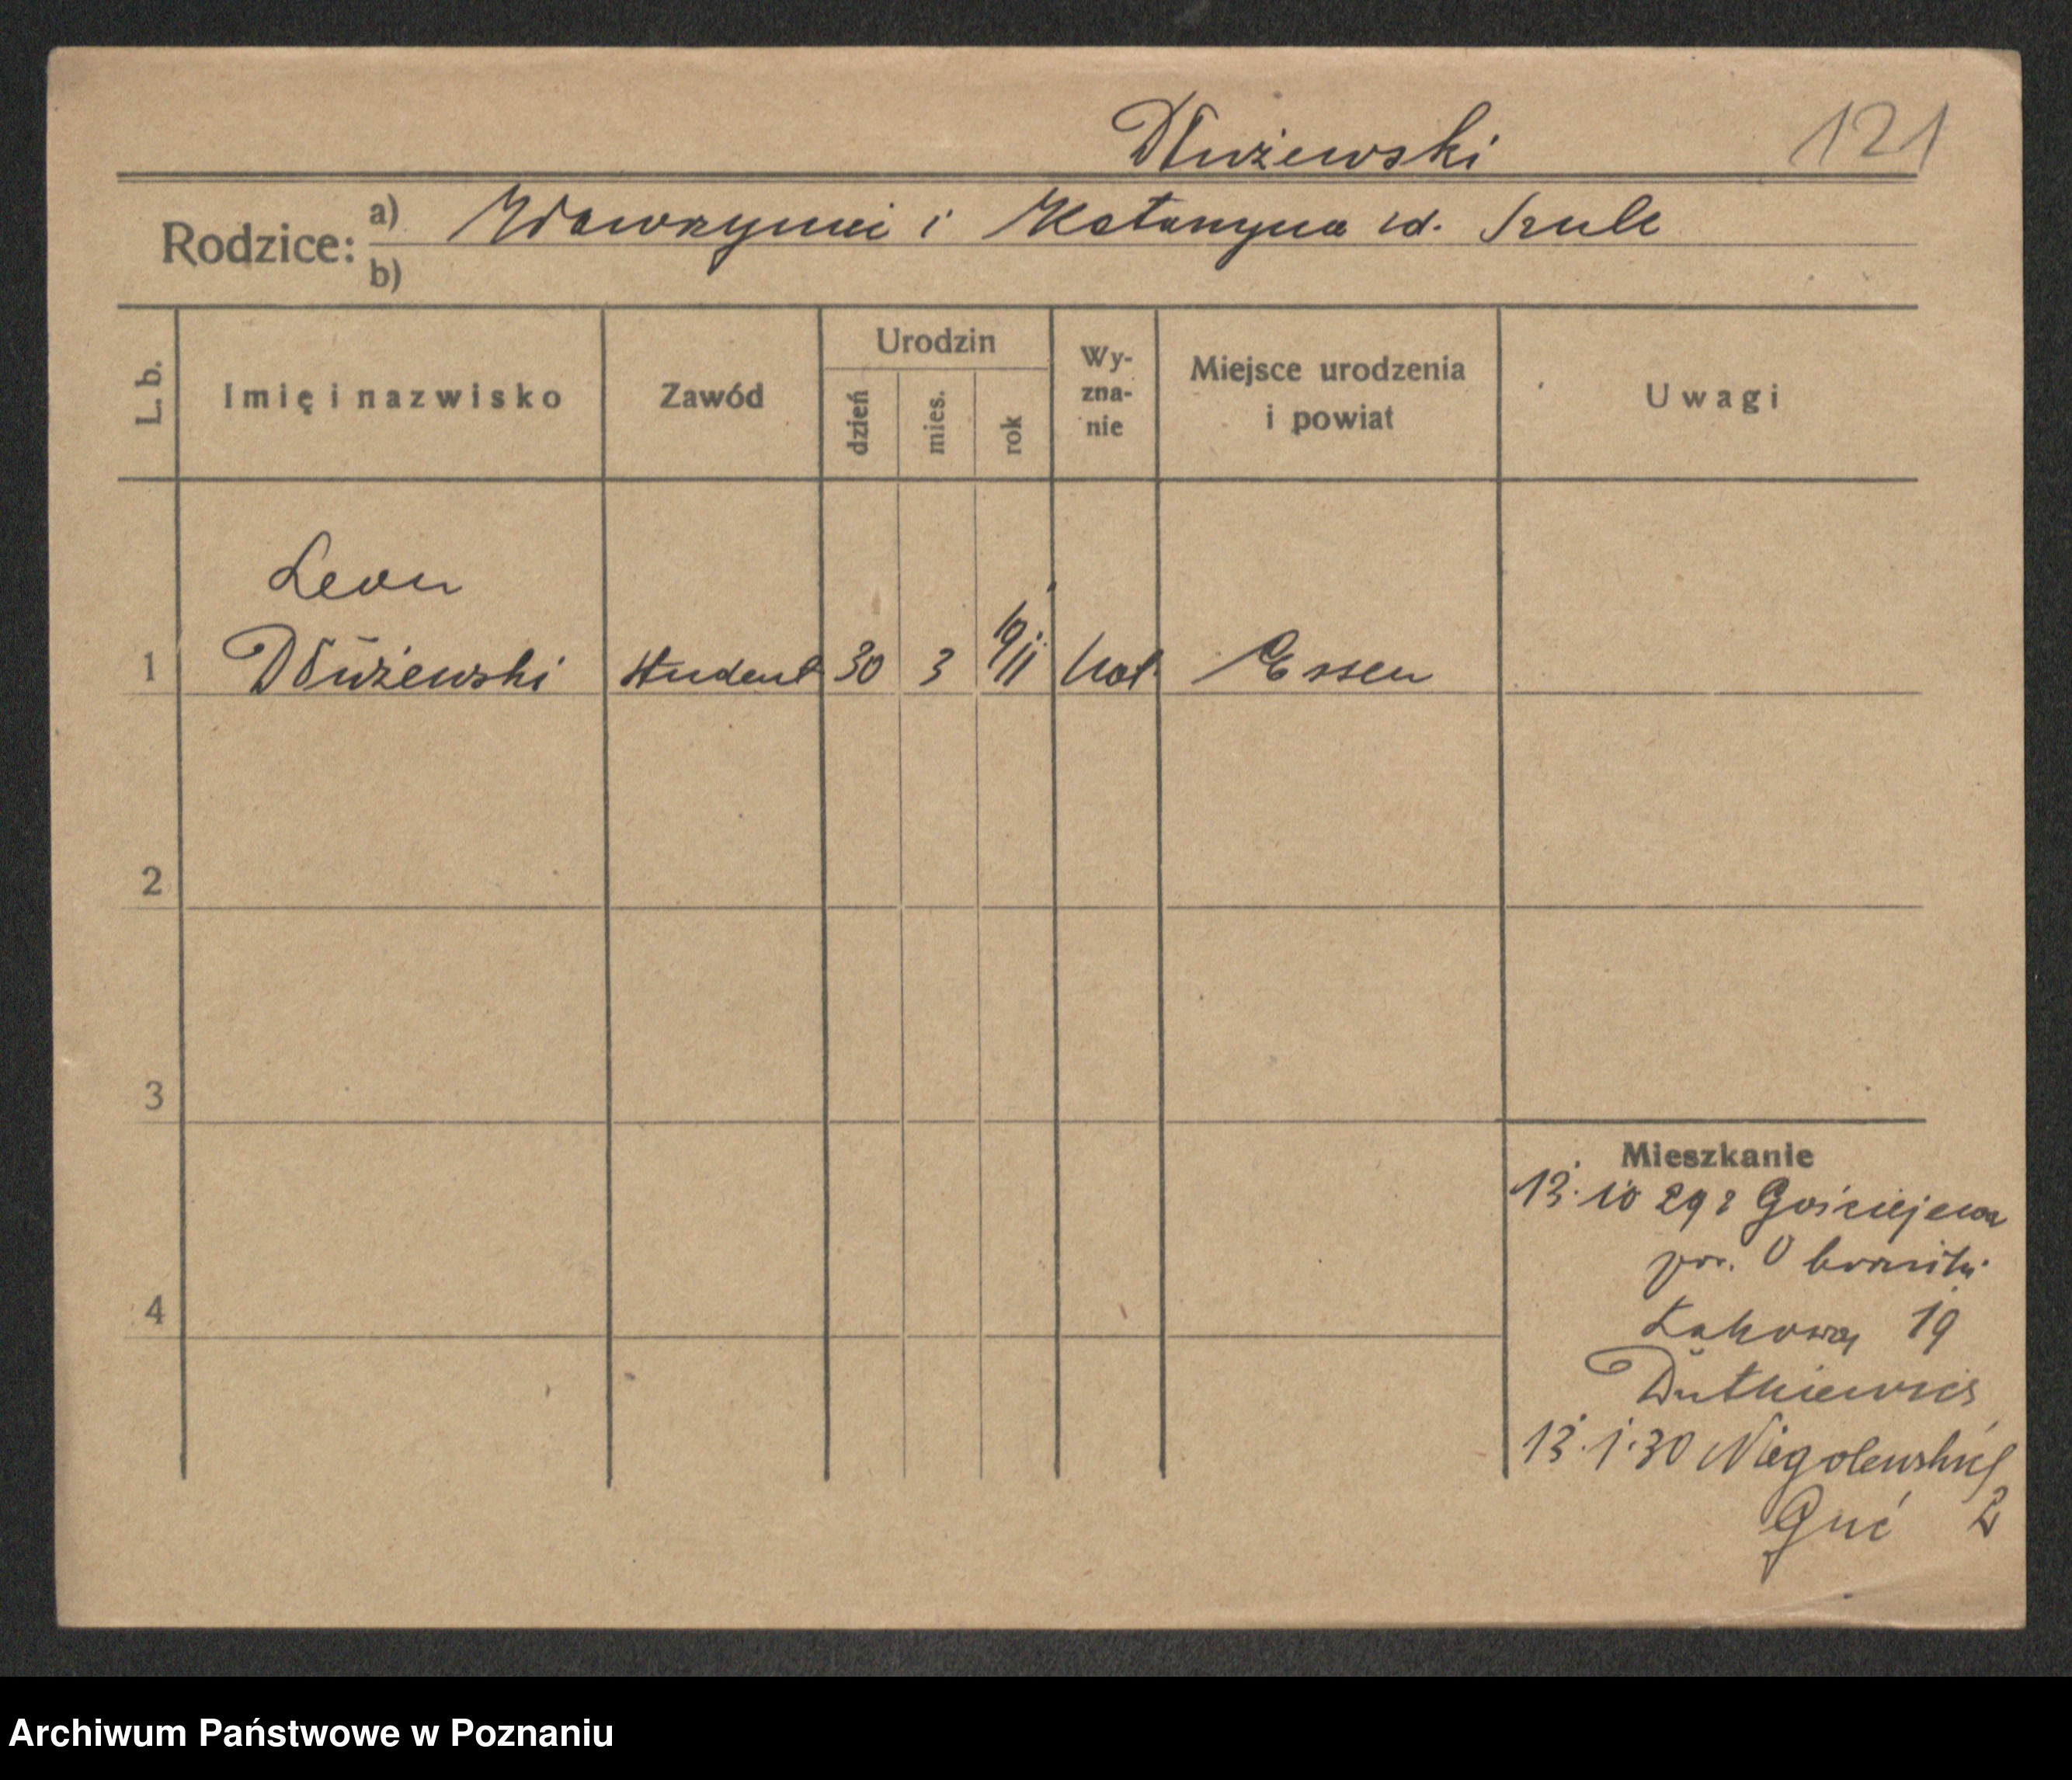 Dłużewski 121
Rodzice: a) Wawrzyniec i Katarzyna zd. Szulc
b)
L. b. Imię i nazwisko Zawód Urodzin dzień mies. rok Wy-zna-nie Miejsce urodzenia i powiat Uwagi
Leon
1 Dłużewski student 30 3 1911 kat. Essen
2
3
Mieszkanie
13.10 29 z Gościejewa
pow. Oborniki
4 Łąkowa 19
Dutkiewicz
13.1.30 Niegolewskich
Guć 2
Archiwum Państwowe w Poznaniu